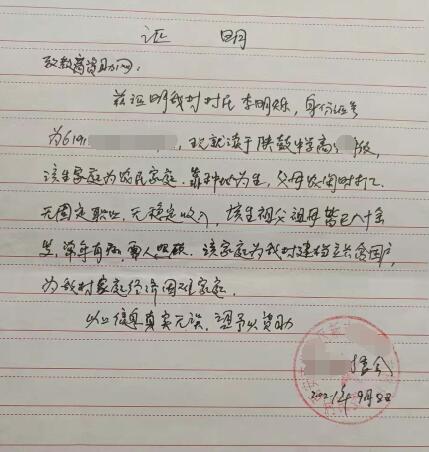 证 明
致教育资助网:
兹证明我村村民李明烁,身份证号
为6191 ,现就读于陕鼓中学高 级,
该生家庭为农民家庭,靠种地为生,父母农闲时打工
无固定职业,无稳定收入,该生祖父祖母皆已八十余
岁,常年有病,需人照顾.该家庭为我村建档立卡贫困户,
为我村家庭经济困难家庭.
以上信息真实无误,望予以资助
村委会
2021年9月8日